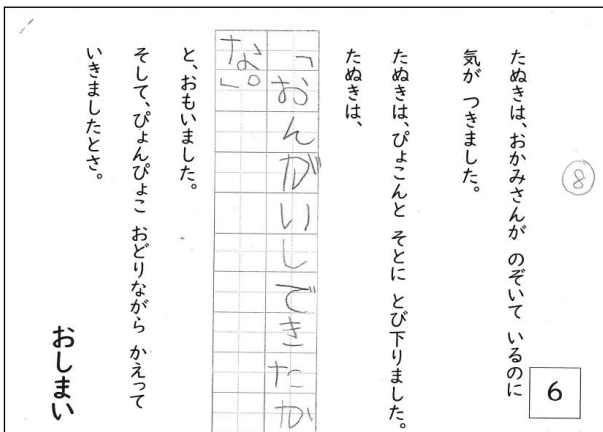 ⑧
6
たぬきは、おかみさんが のぞいて いるのに
気が つきました。
たぬきは、ぴょこんと そとに とび下りました。
たぬきは、
「おんがいしできたか
な。」
と、おもいました。
そして、ぴょんぴょこ おどりながら かえって
いきましたとさ。
おしまい